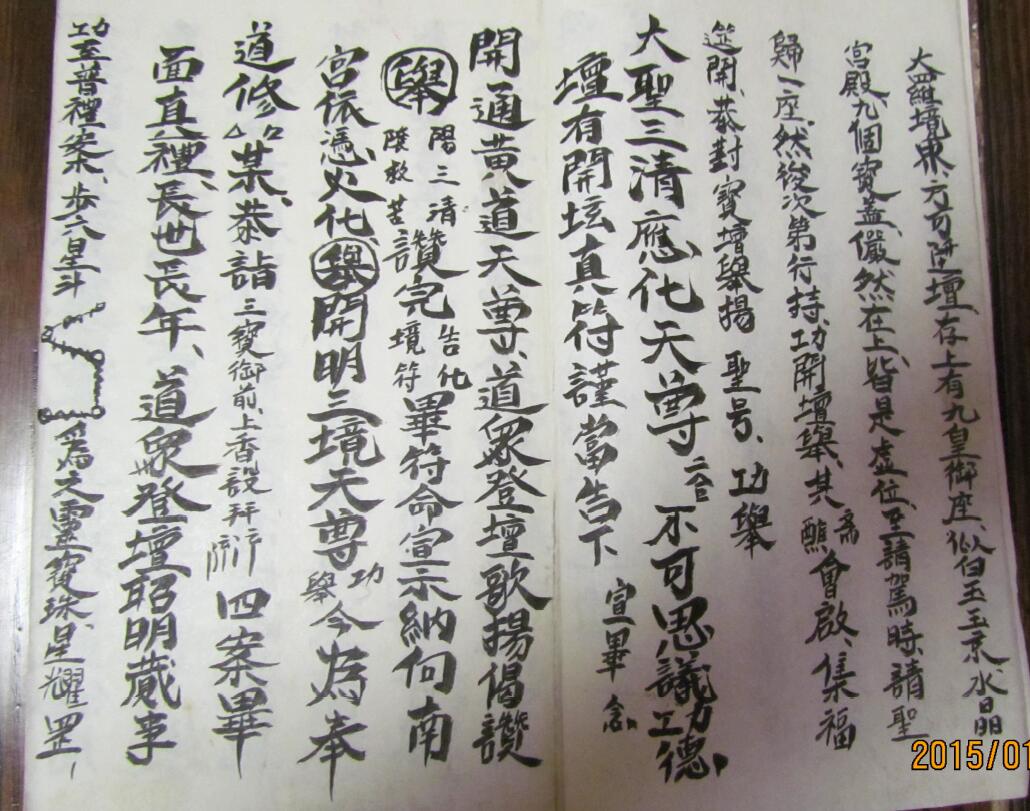 大羅境界、方可開壇、存上有九皇御座、似白玉玉京、水晶
宮殿、九個寶蓋、儼然在上、皆是虛位、至請駕時、請聖
歸一座、然後次第行持、功開壇舉、其齋醮會啟、集福
筵開、恭對寶壇舉揚 聖号、功舉
大聖三清應化天尊 二合 不可思議功德、
壇有開坛真符謹當告下 宣畢 念
開通黃道天尊、道眾登壇歌揚偈讚
舉 陽三清 陰救苦 讚完 告化 境符 畢符命宣示納向南
宮依憑火化、舉開明三境天尊 功舉 今為奉
道修 某、恭詣 三寶御前、上香設拜 四案畢
面真禮、長世長年、道眾登壇昭明蕆事
功至普禮案、步六星斗 為文靈寶珠星耀罡
2015/01